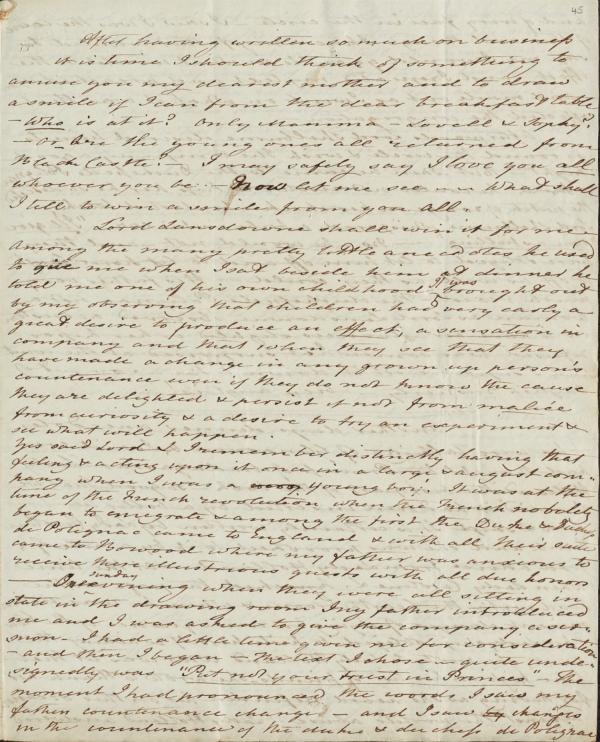 45
After having written so much on business
it is time I should think of something to
amuse you my dearest mother and to draw
a smile if I can from the dear breakfast table
- Who is at it? Only Mamma - Lovell & Sophy?
- or Are the young ones all returned from
Black Castle? - I may safely say I love you all
whoever you be - Now let me see - What shall
I tell to win a smile from you all.
Lord Lansdowne shall win it for me
among the many pretty little anecdotes he used
to give me when I sat beside him at dinner he
told me one of his own childhood It was brought out
by my observing that children had very early a
great desire to produce an effect, a sensation in
company and that when they see that they
have made a change in any grown up person's
countenance even if they do not know the cause
they are delighted & persist if not from malice
from curiosity & a desire to try an experiment &
see what will happen.
Yes said Lord L I remember distinctly having that
feeling & acting upon it once in a large & august com-
pany when I was a young boy. It was at the
time of the French revolution when the French nobility
began to emigrate & among the first the Duke & Duchess
de Polignac came to England & with all their suite
came to Bowood where my father was anxious to
receive these illustrious guests with all due honors
- One Sunday evening when they were all sitting in
state in the drawing room my father introduced
me and I was asked to give the company a ser-
mon - I had a little time given me for consideration
- and then I began - The text I chose - quite unde-
signedly was "Put not your trust in Princes" - The
moment I had pronounced the words I saw my
father countenance change - and I saw changes
in the countenance of the duke & duchess de Polignac